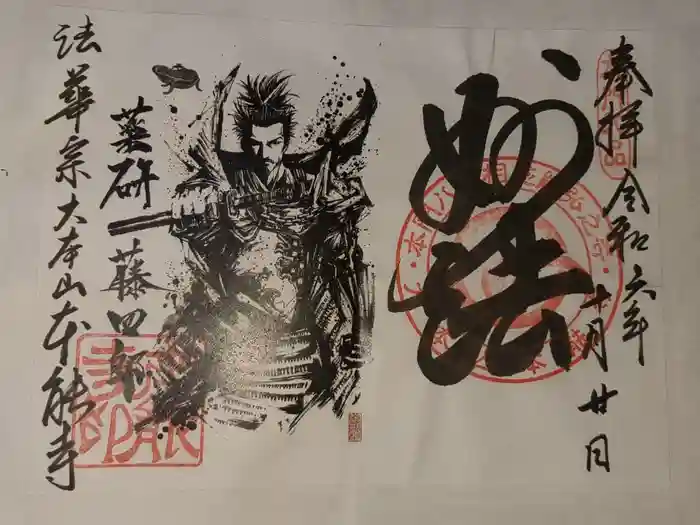 奉拝 令和六年
十月廿日
妙法
薬研 藤四郎
法華宗大本山本能寺